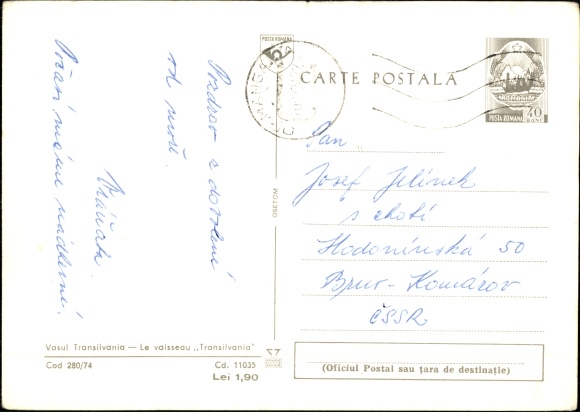 Pozdrav z dovolené
od moře.
Vráťata.
Počasí máme nádherné!
Vasul Transilvania — Le vaisseau „Transilvania"
Cod 280/74
Cd. 11035
Lei 1,90
OSETCM
POSTA ROMANA
CARTE POSTALĂ
POSTA ROMANA
40
BANI
Pan
Josef Jelínek
s chotí
Hodonínská 50
Brno - Komárov
ČSSR
(Oficiul Postal sau țara de destinație)